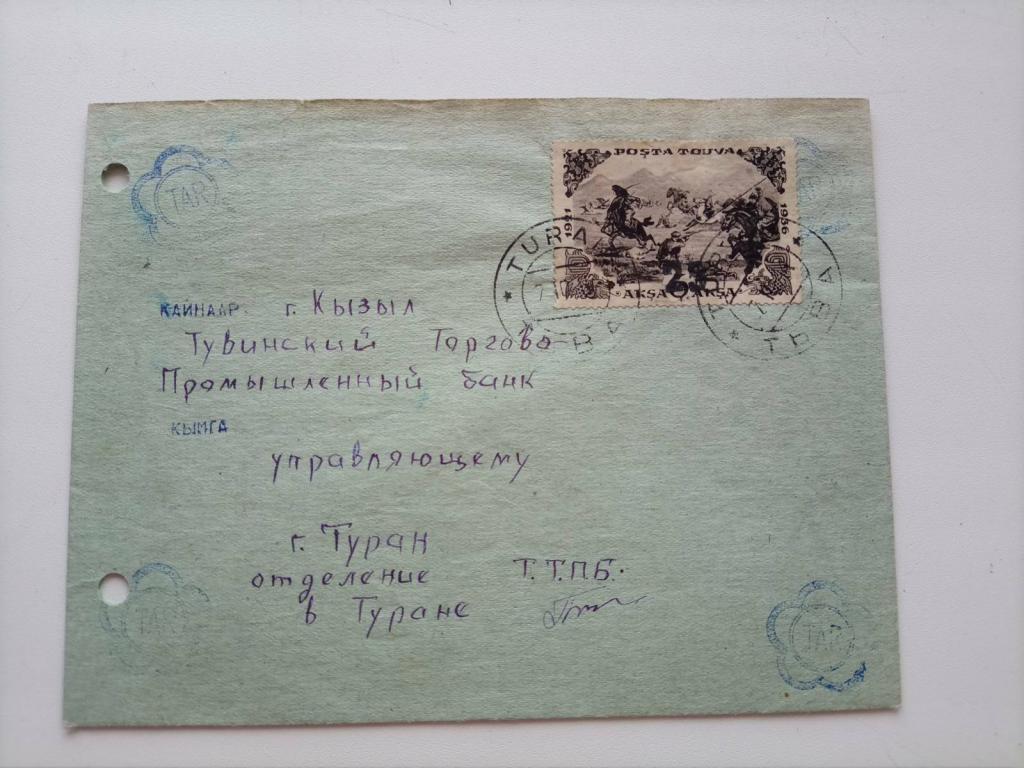 TAR
POSTA TOUVA
1921
1936
AKSA AKSA
TURA
ТЬВА
КАЙНААР г. Кызыл
Тувинский Торгово
Промышленный банк
КЫМГА
управляющему
г. Туран
отделение Т.Т.П.Б.
в Туране
TAR
TAR